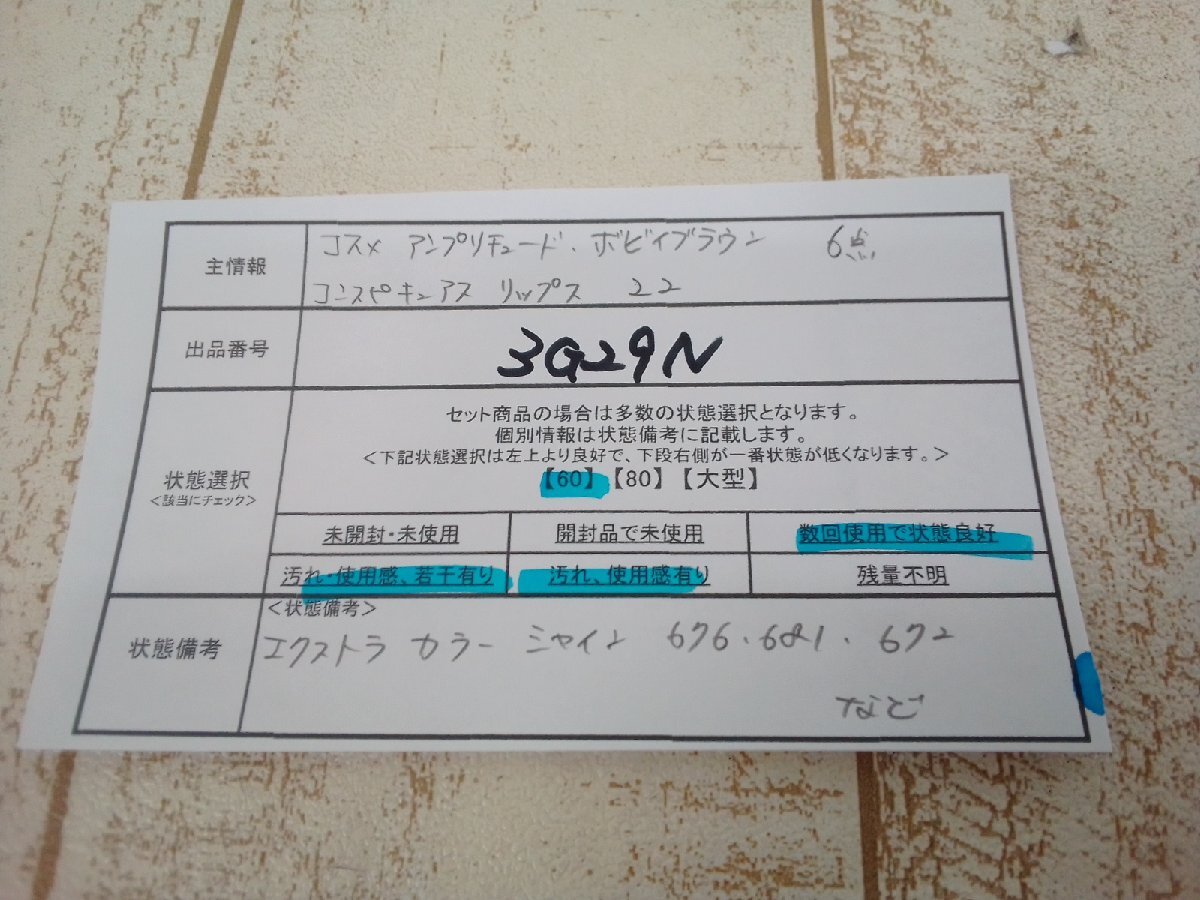 主情報
コスメ アンプリチュード・ボビイブラウン 6点
コンスピキュアス リップス 22
出品番号
3G29N
状態選択
<該当にチェック>
セット商品の場合は多数の状態選択となります。
個別情報は状態備考に記載します。
<下記状態選択は左上より良好で、下段右側が一番状態が低くなります。>
【60】【80】【大型】
未開封・未使用 開封品で未使用 数回使用で状態良好
汚れ・使用感、若干有り 汚れ、使用感有り 残量不明
状態備考
<状態備考>
エクストラ カラー シャイン 676・681・672
など